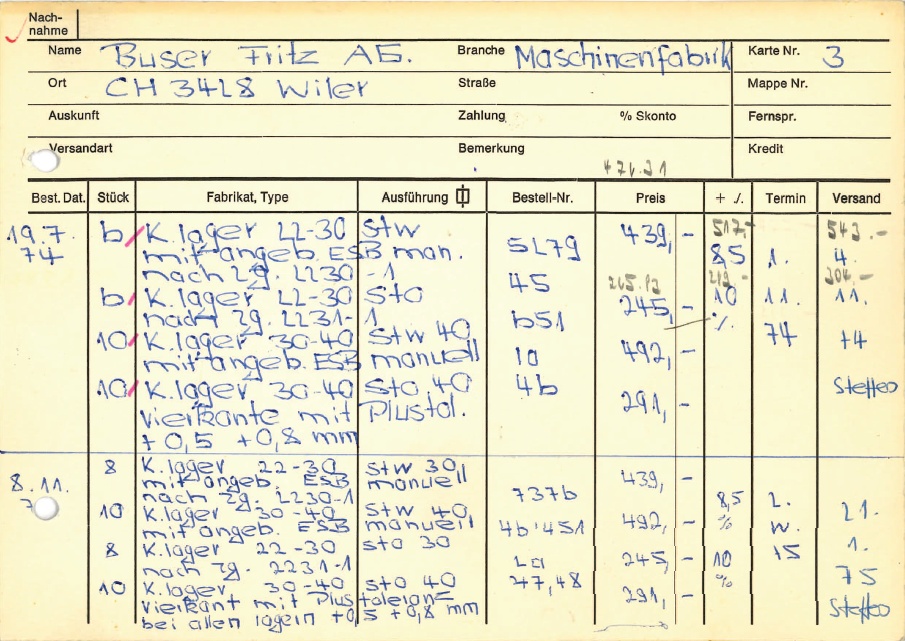 Nach-
nahme
Name Buser Fritz AG. Branche Maschinenfabrik Karte Nr. 3
Ort CH 3428 Wiler Straße Mappe Nr.
Auskunft Zahlung % Skonto Fernspr.
Versandart Bemerkung Kredit
Best. Dat. Stück Fabrikat, Type Ausführung Bestell-Nr. Preis + ./. Termin Versand
517,- 543.-
19.7. 6 K.lager 22-30 stw 439,-
74 mit angeb. ESB man. 5279 8,5 1. 4.
nach Zg. 2230-1 45
6 K.lager 22-30 sta 245,- 10 11. 11.
nach Zg. 2231-1 651 %
10 K.lager 30-40 stw 40 492,- 74 74
mit angeb. ESB manuell 10
10 K.lager 30-40 sta 40 46 291,- Steffeo
vierkante mit Plustol.
+0,5 +0,8 mm
8 K.lager 22-30 stw 30 439,-
8.11. mit angeb. ESB manuell
nach Zg. 2230-1 7376 8,5 2. 21.
10 K.lager 30-40 stw 40 492,- % W.
mit angeb. ESB manuell 46'451
8 K.lager 22-30 sta 30 245,- 10 75 1.
nach Zg. 2231-1 %
10 K.lager 30-40 sta 40 47,48 291,- 75
vierkant mit Plustoleran= Steffeo
bei allen lagern +0,5 +0,8 mm